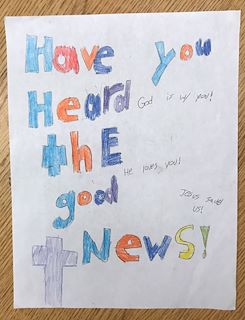 Have you
Heard
God is w/ you!
thE
He loves you!
good
Jesus saved
us!
News!